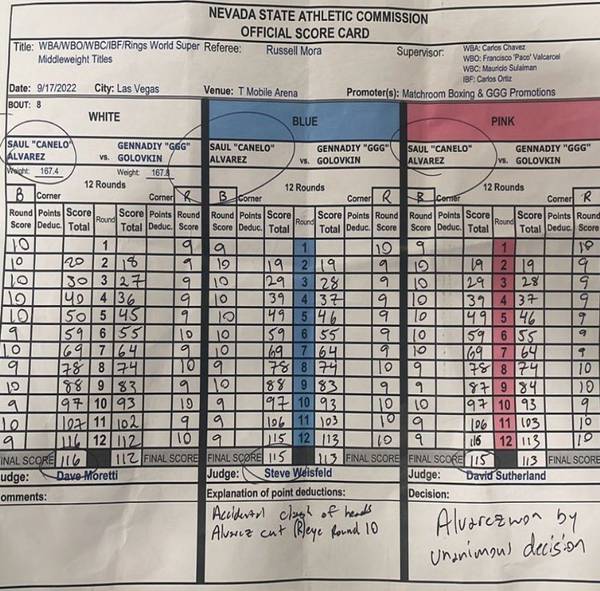 NEVADA STATE ATHLETIC COMMISSION
OFFICIAL SCORE CARD
Title: WBA/WBO/WBC/IBF/Rings World Super Middleweight Titles
Referee: Russell Mora
Supervisor: WBA: Carlos Chavez
WBO: Francisco 'Paco' Valcarcel
WBC: Mauricio Sulaiman
IBF: Carlos Ortiz
Date: 9/17/2022 City: Las Vegas Venue: T Mobile Arena Promoter(s): Matchroom Boxing & GGG Promotions
BOUT: 8
WHITE
SAUL "CANELO" ALVAREZ vs. GENNADIY "GGG" GOLOVKIN
Weight: 167.4 Weight: 167.8
12 Rounds
B Corner Corner R
Round Score Points Deduc. Score Total Round Score Total Points Deduc. Round Score
10 1 9
10 20 2 18 9
10 30 3 27 9
10 40 4 36 9
10 50 5 45 9
9 59 6 55 10
10 69 7 64 9
9 78 8 74 10
10 88 9 83 9
9 97 10 93 10
10 107 11 102 9
9 116 12 112 10
FINAL SCORE 116 112 FINAL SCORE
Judge: Dave Moretti
Comments:
BLUE
SAUL "CANELO" ALVAREZ vs. GENNADIY "GGG" GOLOVKIN
12 Rounds
B Corner Corner R
Round Score Points Deduc. Score Total Round Score Total Points Deduc. Round Score
9 1 10
10 19 2 19 9
10 29 3 28 9
10 39 4 37 9
10 49 5 46 9
10 59 6 55 9
10 69 7 64 9
9 78 8 74 10
10 88 9 83 9
9 97 10 93 10
9 106 11 103 10
9 115 12 113 10
FINAL SCORE 115 113 FINAL SCORE
Judge: Steve Weisfeld
Explanation of point deductions:
Accidental clash of heads
Alvarez cut (R)eye Round 10
PINK
SAUL "CANELO" ALVAREZ vs. GENNADIY "GGG" GOLOVKIN
12 Rounds
B Corner Corner R
Round Score Points Deduc. Score Total Round Score Total Points Deduc. Round Score
9 1 10
10 19 2 19 9
10 29 3 28 9
10 39 4 37 9
10 49 5 46 9
10 59 6 55 9
10 69 7 64 9
9 78 8 74 10
9 87 9 84 10
10 97 10 93 9
9 106 11 103 10
9 12 113 10
FINAL SCORE 115 113 FINAL SCORE
Judge: David Sutherland
Decision:
Alvarez won by
unanimous decision